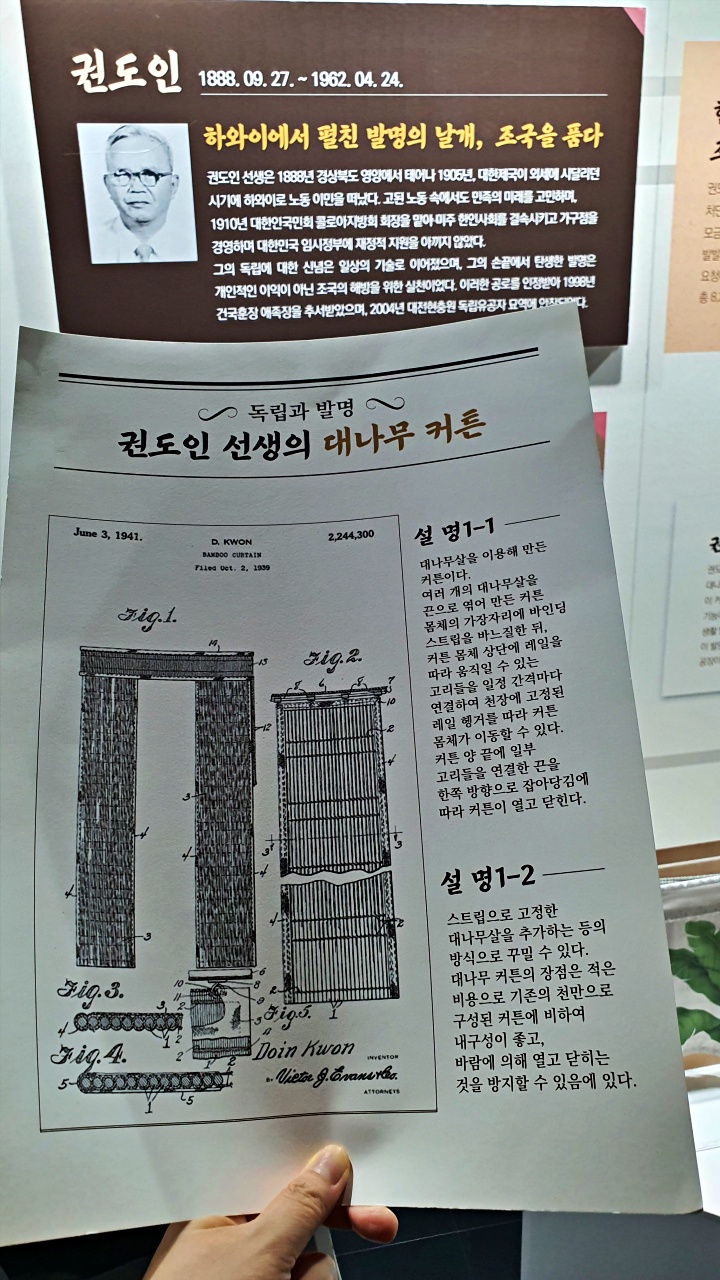 권도인 1888. 09. 27. ~ 1962. 04. 24.
하와이에서 펼친 발명의 날개, 조국을 품다
권도인 선생은 1888년 경상북도 영양에서 태어나 1905년, 대한제국이 외세에 시달리던
시기에 하와이로 노동 이민을 떠났다. 고된 노동 속에서도 민족의 미래를 고민하며,
1910년 대한인국민회 콜로아지방회 회장을 맡아 미주 한인사회를 결속시키고 가구점을
경영하며 대한민국 임시정부에 재정적 지원을 아끼지 않았다.
그의 독립에 대한 신념은 일상의 기술로 이어졌으며, 그의 손끝에서 탄생한 발명은
개인적인 이익이 아닌 조국의 해방을 위한 실천이었다. 이러한 공로를 인정받아 1998년
건국훈장 애족장을 추서받았으며, 2004년 대전현충원 독립유공자 묘역에 안장되었다.
독립과 발명
권도인 선생의 대나무 커튼
June 3, 1941. D. KWON 2,244,300
BAMBOO CURTAIN
Filed Oct. 2, 1939
Fig.1.
Fig.2.
Fig.3.
Fig.4.
Fig.5.
Doin Kwon
INVENTOR
Victor J. Evans & Co.
ATTORNEYS
설 명1-1
대나무살을 이용해 만든
커튼이다.
여러 개의 대나무살을
끈으로 엮어 만든 커튼
몸체의 가장자리에 바인딩
스트립을 바느질한 뒤,
커튼 몸체 상단에 레일을
따라 움직일 수 있는
고리들을 일정 간격마다
연결하여 천장에 고정된
레일 헹거를 따라 커튼
몸체가 이동할 수 있다.
커튼 양 끝에 일부
고리들을 연결한 끈을
한쪽 방향으로 잡아당김에
따라 커튼이 열고 닫힌다.
설 명1-2
스트립으로 고정한
대나무살을 추가하는 등의
방식으로 꾸밀 수 있다.
대나무 커튼의 장점은 적은
비용으로 기존의 천만으로
구성된 커튼에 비하여
내구성이 좋고,
바람에 의해 열고 닫히는
것을 방지할 수 있음에 있다.